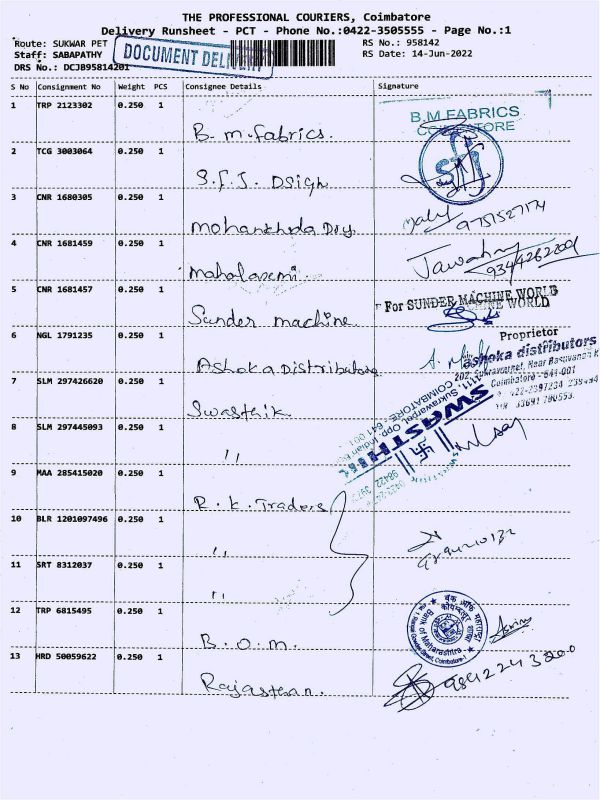 THE PROFESSIONAL COURIERS, Coimbatore
Delivery Runsheet - PCT - Phone No.:0422-3505555 - Page No.:1
Route: SUKWAR PET RS No.: 958142
Staff: SABAPATHY RS Date: 14-Jun-2022
DRS No.: DCJB95814201
DOCUMENT
S No Consignment No Weight PCS Consignee Details Signature
1 TRP 2123302 0.250 1 B.m.fabrics.
B.M.FABRICS
COIMBATORE
2 TCG 3003064 0.250 1 S.F.J. DSigh
sfj
3 CNR 1680305 0.250 1
9751527174
4 CNR 1681459 0.250 1 mahalaxmi
9344262209
5 CNR 1681457 0.250 1 Sunder machine
For SUNDER MACHINE WORLD
Proprietor
6 NGL 1791235 0.250 1 Ashoka Distributors
ashoka distributors
Coimbatore - 641-001
7 SLM 297426620 0.250 1 Swasthik
1111, Sukrawarpet, Opp. Indian
COIMBATORE - 641 001
SWASTHIK
8 SLM 297445093 0.250 1 "
9 MAA 285415020 0.250 1 R.K.Traders
10 BLR 1201097496 0.250 1 "
11 SRT 8312037 0.250 1 "
12 TRP 6815495 0.250 1 B.O.M.
बैंक ऑफ महाराष्ट्र
Bank of Maharashtra
13 HRD 50059622 0.250 1 Rajasthan.